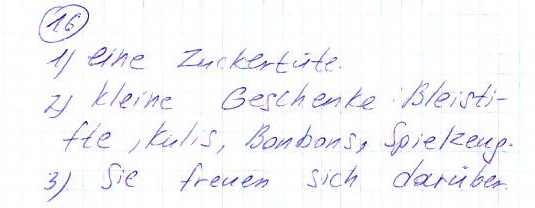 16
1) eine Zuckertüte.
2) kleine Geschenke: Bleisti-
fte, Kulis, Bonbons, Spielzeug.
3) Sie freuen sich darüber.